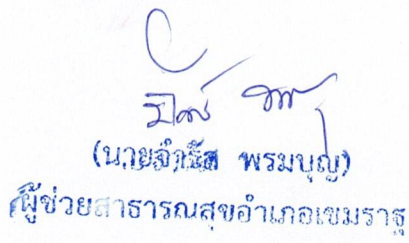 (นายจำรัส พรมบุญ)
ผู้ช่วยสาธารณสุขอำเภอเขมราฐ